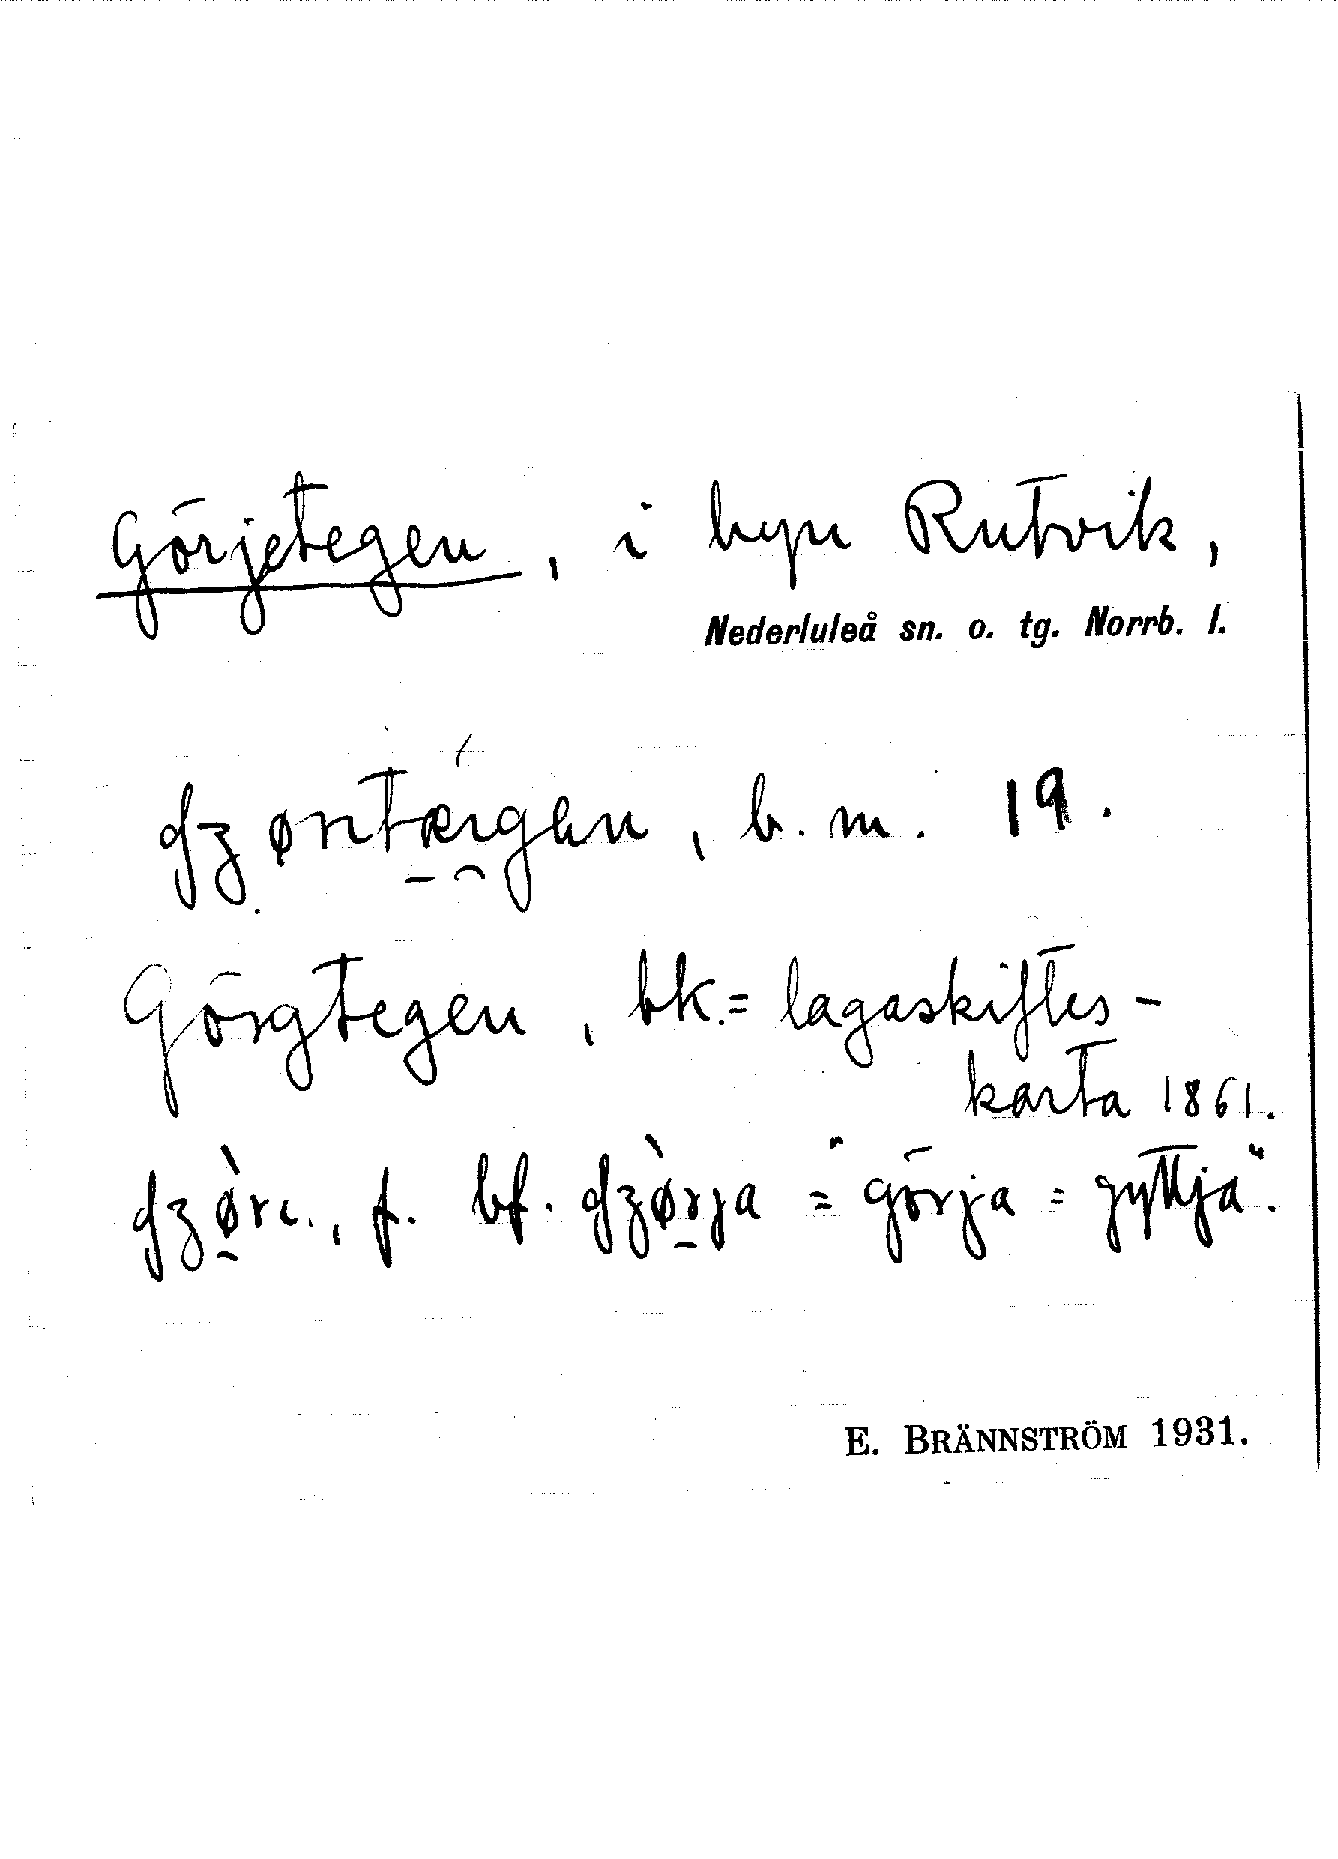 Görjetegen, i byn Rutvik,
Nederluleå sn. o. tg. Norrb. l.
b. m. 19.
Görgtegen, bk. = lagaskiftes-
karta 1861.
f. bf. = "görja = gyttja".
E. BRÄNNSTRÖM 1931.